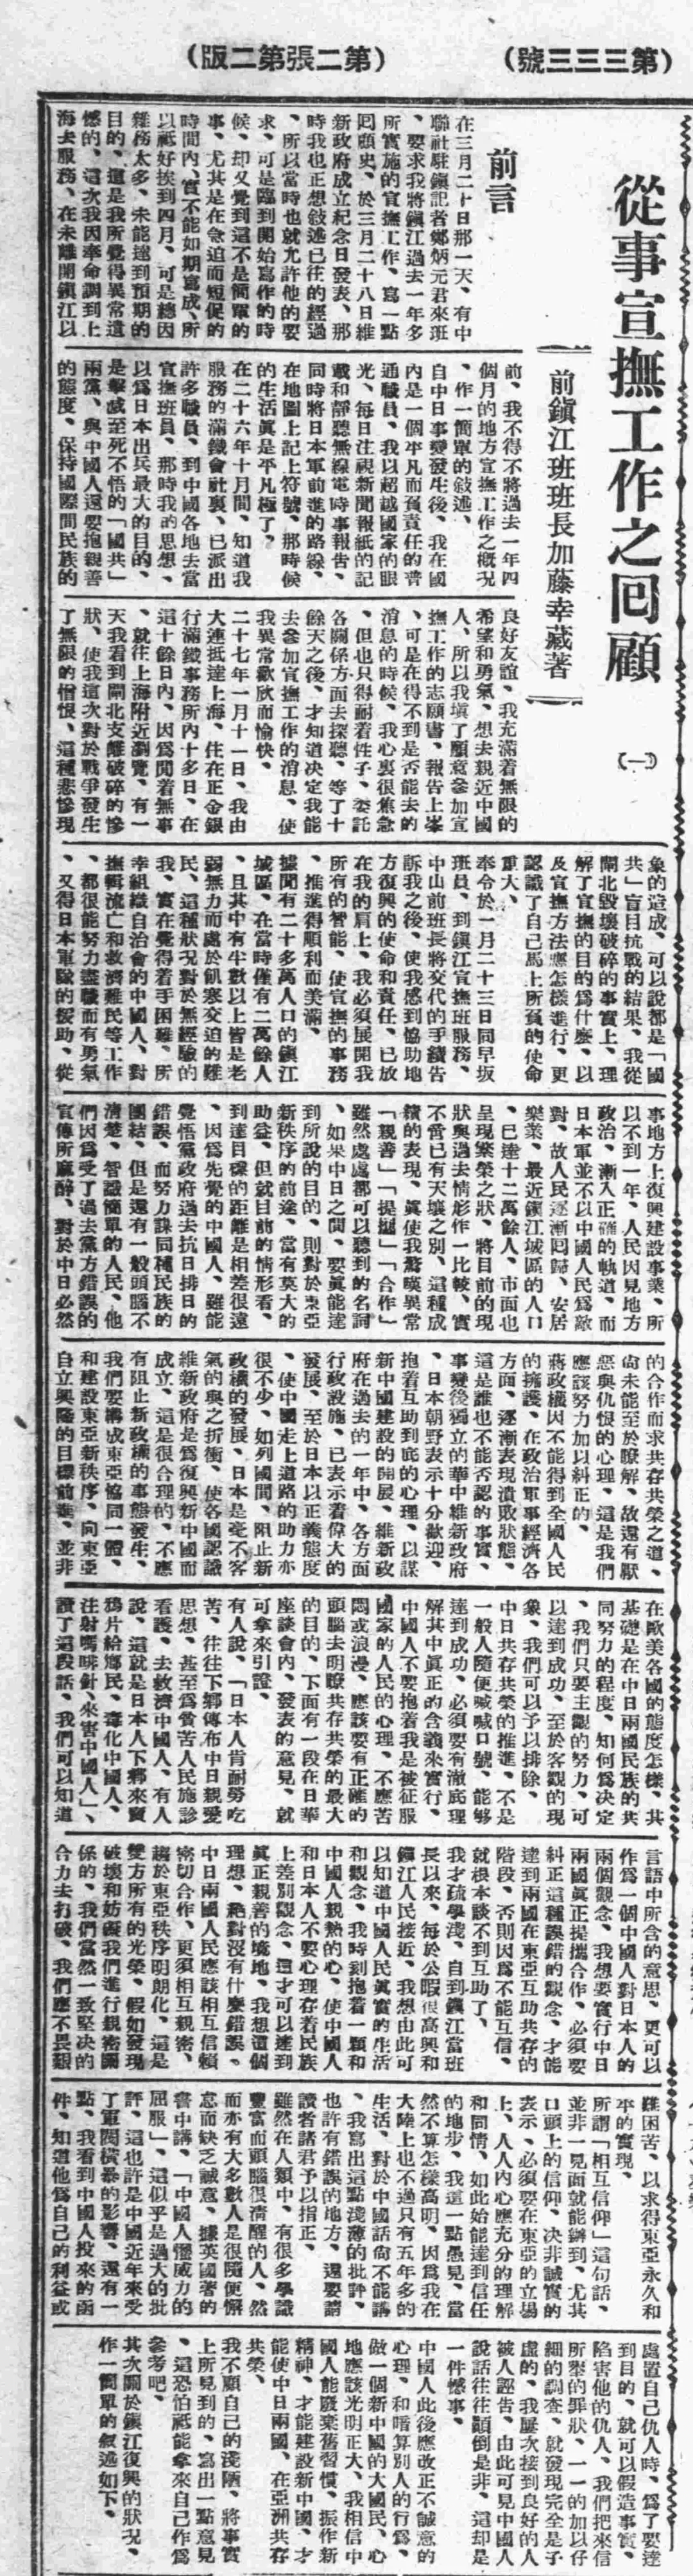 (第三三三號)
(第二張第二版)
從事宣撫工作之回顧
(一)
前鎮江班班長加藤幸藏著
前言
在三月二十日那一天、有中
聯社駐鎮記者鄭炳元君來班
、要求我將鎮江過去一年多
所實施的宣撫工作、寫一點
囘顧史、於三月二十八日維
新政府成立紀念日發表、那
時我也正想敍述已往的經過
、所以當時也就允許他的要
求、可是臨到開始寫作的時
候、却又覺到這不是簡單的
事、尤其是在急迫而短促的
時間內、實不能如期寫成、所
以祗好挨到四月、可是總因
雜務太多、未能達到預期的
目的、這是我所覺得異常遺
憾的、這次我因奉命調到上
海去服務、在未離開鎮江以
前、我不得不將過去一年四
個月的地方宣撫工作之概況
、作一簡單的敍述、
自中日事變發生後、我在國
內是一個平凡而負責任的普
通職員、我以超越國家的眼
光、每日注視新聞報紙的記
載和靜聽無線電時事報告、
同時將日本軍前進的路線、
在地圖上記上符號、那時候
的生活眞是平凡極了、
在二十六年十月間、知道我
服務的滿鐵會社裏、已派出
許多職員、到中國各地去當
宣撫班員、那時我的思想、
以爲日本出兵最大的目的、
是擊滅至死不悟的「國共」
兩黨、與中國人還要抱親善
的態度、保持國際間民族的
良好友誼、我充滿着無限的
希望和勇氣、想去親近中國
人、所以我塡了願意參加宣
撫工作的志願書、報告上峯
、可是在得不到是否能去的
消息的時候、我心裏很焦急
、但也只得耐着性子、委託
各關係方面去探聽、等了十
餘天之後、才知道決定我能
去參加宣撫工作的消息、使
我異常歡欣而愉快、
二十七年一月十一日、我由
大連抵達上海、住在正金銀
行滿鐵事務所內十多日、在
這十餘日內、因爲閒着無事
、就往上海附近瀏覽、有一
天我看到閘北支離破碎的慘
狀、使我這次對於戰爭發生
了無限的憎恨、這種悲慘現
象的造成、可以說都是「國
共」盲目抗戰的結果、我從
閘北毀壞破碎的事實上、理
解了宣撫的目的爲什麼、以
及宣撫方法應怎樣進行、更
認識了自己馬上所負的使命
重大、
奉令於一月二十三日同早坂
班員、到鎮江宣撫班服務、
中山前班長將交代的手續告
訴我之後、使我感到協助地
方復興的使命和責任、已放
在我的肩上、我必須展開我
所有的智能、使宣撫的事務
、推進得順利而美滿、
據聞有二十多萬人口的鎮江
城區、在當時僅有二萬餘人
、且其中有半數以上皆是老
弱無力而處於飢寒交迫的難
民、這種狀況對於無經驗的
我、實在覺得着手困難、所
幸組織自治會的中國人、對
撫輯流亡和救濟難民等工作
、都很能努力盡職而有勇氣
、又得日本軍隊的援助、從
事地方上復興建設事業、所
以不到一年、人民因見地方
政治、漸入正確的軌道、而
日本軍並不以中國人民爲敵
對、故人民逐漸囘歸、安居
樂業、最近鎮江城區的人口
、已達十二萬餘人、市面也
呈現繁榮之狀、將目前的現
狀與過去情形作一比較、實
不啻已有天壤之別、這種成
績的表現、眞使我驚嘆異常
「親善」「提攜」「合作」
雖然處處都可以聽到的名詞
、如果中日之間、要眞能達
到所說的目的、則對於東亞
新秩序的前途、當有莫大的
助益、但就目前的情形看、
到達目標的距離是相差很遠
、因爲先覺的中國人、雖能
覺悟黨政府過去抗日排日的
錯誤、而努力謀同種民族的
團結、但是還有一般頭腦不
清楚、智識簡單的人民、他
們因爲受了過去黨方錯誤的
宣傳所麻醉、對於中日必然
的合作而求共存共榮之道、
尚未能至於瞭解、故還有厭
惡與仇恨的心理、這是我們
應該努力加以糾正的、
蔣政權因不能得到全國人民
的擁護、在政治軍事經濟各
方面、逐漸表現潰敗狀態、
這是誰也不能否認的事實、
事變後獨立的華中維新政府
、日本朝野表示十分歡迎、
抱着互助到底的心理、以謀
新中國建設的開展、維新政
府在過去的一年中、各方面
行政設施、已表示着偉大的
發展、至於日本以正義態度
、使中國走上道路的助力亦
很不少、如列國間、阻止新
政權的發展、日本是毫不客
氣的與之折衝、使各國認識
維新政府是爲復興新中國而
成立、這是很合理的、不應
有阻止新政權的事態發生、
我們要構成東亞協同一體、
和建設東亞新秩序、向東亞
自立興隆的目標前進、並非
在歐美各國的態度怎樣、其
基礎是在中日兩國民族的共
同努力的程度、如何爲決定
、我們只要主觀的努力、可
以達到成功、至於客觀的現
象、我們可以予以排除、
中日共存共榮的推進、不是
一般人隨便喊喊口號、能夠
達到成功、必須要有澈底理
解其中眞正的含義來實行、
中國人不要抱着我是被征服
國家的人民的心理、不應苦
悶或浪漫、應該要有正確的
頭腦去明瞭共存共榮的最大
的目的、下面有一段在日華
座談會內、發表的意見、就
可拿來引證、
有人說、「日本人肯耐勞吃
苦、往往下鄉傳布中日親愛
思想、甚至爲貧苦人民施診
看護、去救濟中國人、有人
說、這就是日本人下鄉來賣
鴉片給鄉民、毒化中國人、
注射嗎啡針、來害中國人」、
讀了這段話、我們可以知道
言語中所含的意思、更可以
作爲一個中國人對日本人的
兩個觀念、我想要實行中日
兩國眞正提攜合作、必須要
糾正這種誤錯的觀念、才能
達到兩國在東亞互助共存的
階段、否則因爲不能互信、
就根本談不到互助了、
我才疏學淺、自到鎮江當班
長以來、每於公暇很高興和
鎮江人民接近、我想由此可
以知道中國人民眞實的生活
和觀念、我時刻抱着一顆和
中國人親熱的心、使中國人
和日本人不要心理存着民族
上差別觀念、這才可以達到
眞正親善的境地、我想這個
理想、絕對沒有什麼錯誤。
中日兩國人民應該相互信賴
密切合作、更須相互親密、
趨於東亞秩序明朗化、這是
雙方所有的光榮、假如發現
破壞和妨礙我們進行親密關
係的、我們當然一致堅決的
合力去打破、我們應不畏艱
難困苦、以求得東亞永久和
平的實現、
所謂「相互信仰」這句話、
並非一見面就能辦到、尤其
口頭上的信仰、決非誠實的
表示、必須要在東亞的立場
上、人人內心應充分的理解
和同情、如此始能達到信任
的地步、我這一點愚見、當
然不算怎樣高明、因爲我在
大陸上也不過只有五年多的
生活、對於中國話尙不能講
、我寫出這點淺薄的批評、
也許有錯誤的地方、還要請
讀者諸君予以指正、
雖然在人類中、有很多學識
豐富而頭腦很清醒的人、然
而亦有大多數人是很隨便懈
怠而缺乏誠意、據英國著的
書中講、「中國人懼威力的
屈服」、這似乎是過大的批
評、這也許是中國近年來受
了軍閥橫暴的影響、還有一
點、我看到中國人投來的函
件、知道他爲自己的利益或
處置自己仇人時、爲了要達
到目的、就可以假造事實、
陷害他的仇人、我們把來信
所擧的罪狀、一一的加以仔
細的調查、就發現完全是子
虛的、我屢次接到良好的人
被人誣告、由此可見中國人
說話往往顚倒是非、這却是
一件憾事、
中國人此後應改正不誠意的
心理、和暗算別人的行爲、
做一個新中國的大國民、心
地應該光明正大、我相信中
國人能廢棄舊習慣、振作新
精神、才能建設新中國、才
能使中日兩國、在亞洲共存
共榮、
我不顧自己的淺陋、將事實
上所見到的、寫出一點意見
、這恐怕祗能拿來自己作爲
參考吧、
其次關於鎮江復興的狀況、
作一簡單的敍述如下。